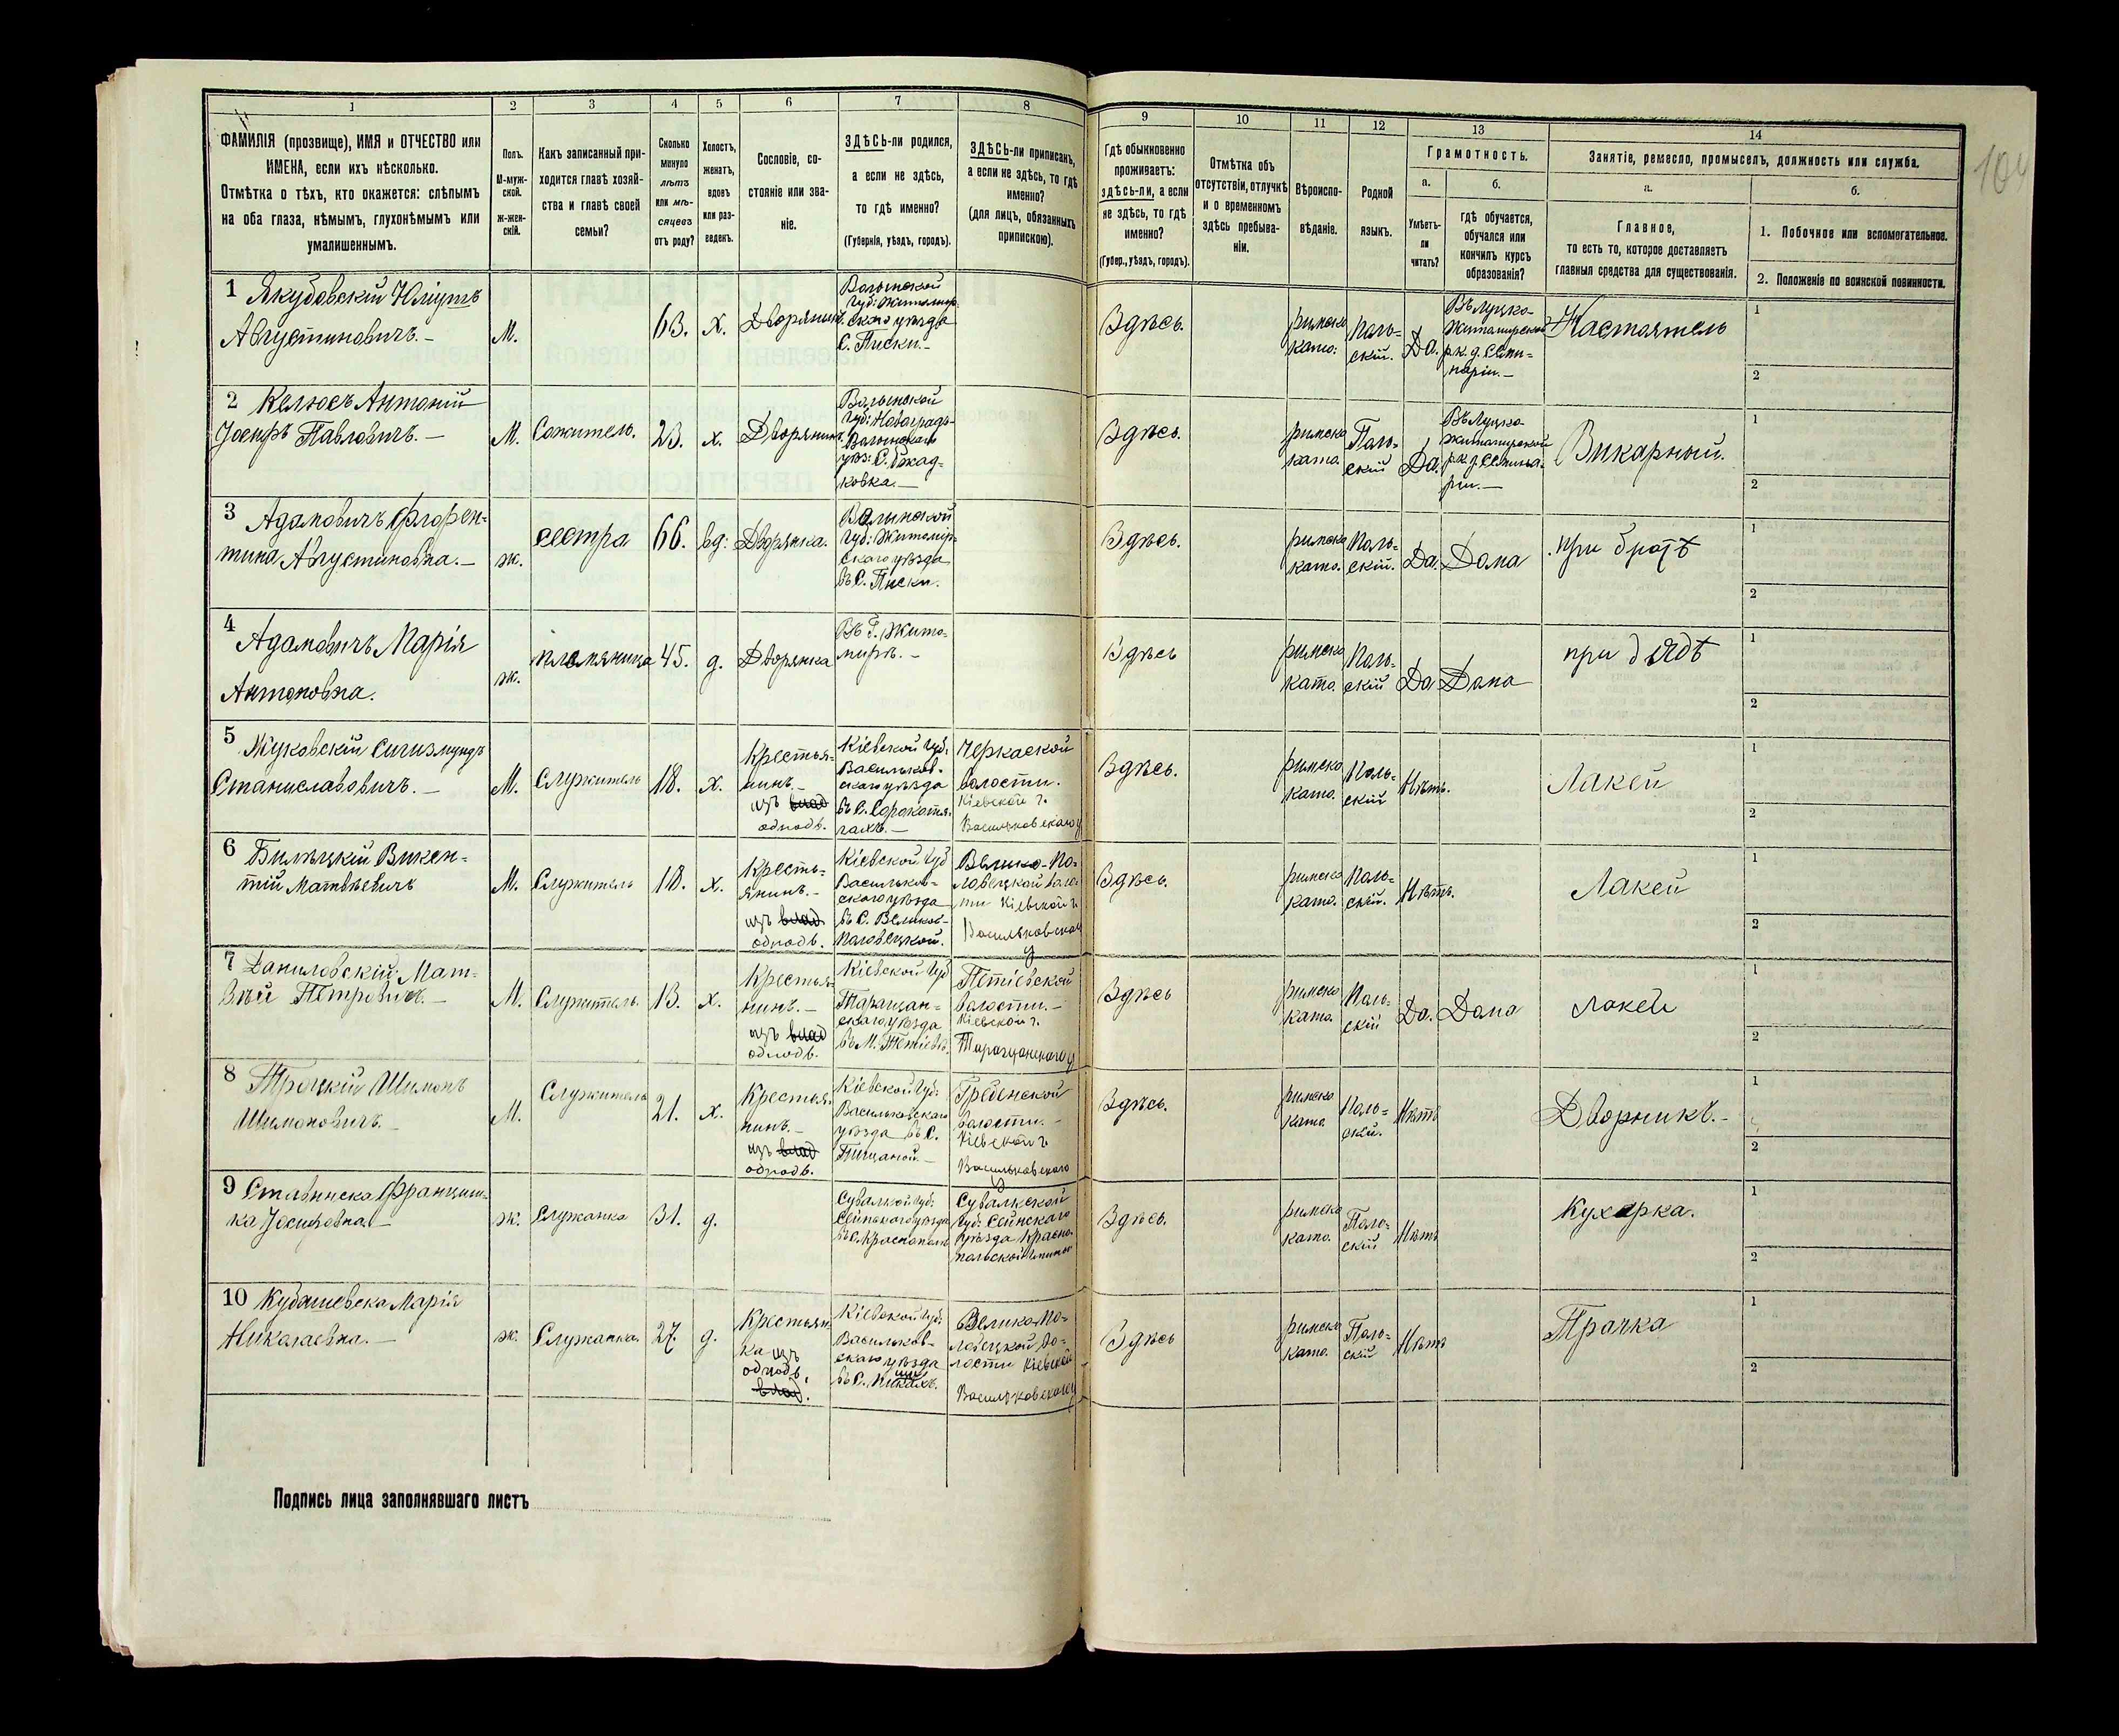 1
2
3
4
5
6
7
8
9
10
11
12
13
14
ФАМИЛІЯ (прозвище), ИМЯ и ОТЧЕСТВО или
ИМЕНА, если ихъ нѣсколько.
Отмѣтка о тѣхъ, кто окажется: слѣпымъ
на оба глаза, нѣмымъ, глухонѣмымъ или
умалишеннымъ.
Полъ.
М-муж-
ской.
ж-жен-
скій.
Какъ записанный при-
ходится главѣ хозяй-
ства и главѣ своей
семьи?
Сколько
минуло
лѣтъ
или мѣ-
сяцевъ
отъ роду?
Холостъ,
женатъ,
вдовъ
или раз-
веденъ.
Сословіе, со-
стояніе или зва-
ніе.
ЗДѢСЬ-ли родился,
а если не здѣсь,
то гдѣ именно?
(Губернія, уѣздъ, городъ).
ЗДѢСЬ-ли приписанъ,
а если не здѣсь, то гдѣ
именно?
(для лицъ, обязанныхъ
припискою).
Гдѣ обыкновенно
проживаетъ:
здѣсь-ли, а если
не здѣсь, то гдѣ
именно?
(Губер., уѣздъ, городъ).
Отмѣтка объ
отсутствіи, отлучкѣ
и о временномъ
здѣсь пребыва-
ніи.
Вѣроиспо-
вѣданіе.
Родной
языкъ.
Грамотность.
а.
Умѣетъ-
ли
читать?
б.
гдѣ обучается,
обучался или
кончилъ курсъ
образованія?
Занятіе, ремесло, промыселъ, должность или служба.
а.
Главное,
то есть то, которое доставляетъ
главныя средства для существованія.
б.
1. Побочное или вспомогательное.
2. Положеніе по воинской повинности.
104
1 Якубовскій Юліушъ
Августиновичъ.—
М.
63.
х.
Дворянинъ
Волынской
губ: Житомир-
скаго уѣзда
С. Писки.—
Здѣсь.
римско
като:
Поль-
скій.
Да.
Въ Луцко-
Житомирской
р.к.д. Семи-
наріи.—
Настоятель
1
2
2 Келюсъ Антоній
Іосифъ Павловичъ.—
М.
Сожитель.
23.
х.
Дворянинъ
Волынской
губ: Новоградъ-
Волынскаго
уѣз: С.
Здѣсь.
римско
като.
Поль-
скій
Да.
Въ Луцко-
Житомирской
р.к.д. Семина-
ріи.—
Викарный.
1
2
3 Адамовичъ Флорен-
тина Августиновна.—
ж.
сестра
66.
вд:
Дворянка.
Волынской
губ: Житомир-
скаго уѣзда
въ С. Писки.
Здѣсь.
римско
като.
Поль-
скій.
Да.
Дома
при братѣ
1
2
4 Адамовичъ Марія
Антоновна.
ж.
племяница
45.
д.
Дворянка
Въ Г. Жито-
мирѣ.—
Здѣсь
римско
като.
Поль-
скій
Да
Дома
при дядѣ
1
2
5 Жуковскій Сигизмундъ
Станиславовичъ.—
М.
Служитель
18.
х.
Крестья-
нинъ.—
изъ влад
однодв.
Кіевской Губ:
Васильков-
скаго уѣзда
въ С. Сорокотя-
гахъ.—
Черкаской
волости.
Кіевской г.
Васильковскаго у
Здѣсь.
римско
като.
Поль-
скій
Нѣтъ.
Лакей
1
2
6 Билѣцкій Викен-
тій Матвѣевичъ
М.
Служитель
18.
х.
Кресть-
янинъ.—
изъ влад
однодв.
Кіевской Губ
Васильков-
скаго уѣзда
въ С. Великос-
Половецкой.
Велико-По-
ловецкой воло-
ти Кіевской г.
Васильковскаго
у
Здѣсь.
римско
като.
Поль-
скій.
Нѣтъ.
Лакей
1
2
7 Даниловскій Мат-
вѣй Петровичъ.—
М.
Служитель.
13.
х.
Крестья-
нинъ.—
изъ влад
однодв.
Кіевской Губ
Таращан-
скаго уѣзда
въ М. Тетіевѣ.
Тетіевской
волости.—
Кіевской г.
Таращанскаго у
Здѣсь
римско
като.
Поль-
скій
Да.
Дома
лакей
1
2
8 Троцкій Шимонъ
Шимоновичъ.—
М.
Служитель
21.
х.
Крестья-
нинъ.—
изъ влад
однодв.
Кіевской Губ:
Васильковскаго
уѣзда въ С.
Пищаной.—
Гребенской
волости.—
Кіевской г
Васильковскаго
у
Здѣсь.
римско
като.
Поль-
скій.
Нѣтъ
Дворникъ.—
1
2
9 Ставинска Францишъ-
ка Іосифовна.—
ж.
Служанка
31.
д.
Сувалкой Губ:
Сейнскаго уѣзда
въ С. Краснополь
Сувалкской
Губ: Сейнскаго
уѣзда Красно-
польской гмины
Здѣсь.
римско
като.
Поль-
скій
Нѣтъ
Кухарка.
1
2
10 Кудашевска Марія
Николаевна.—
ж.
Служанка.
27
д.
Крестьян
ка изъ
однодв.
влад.
Кіевской Губ:
Васильков-
скаго уѣзда
въ С.
Велико-По-
ловецкой во-
лости Кіевской
Васильковскаго у
Здѣсь
римско
като.
Поль-
скій
Нѣтъ
Прачка
1
2
Подпись лица заполнявшаго листъ